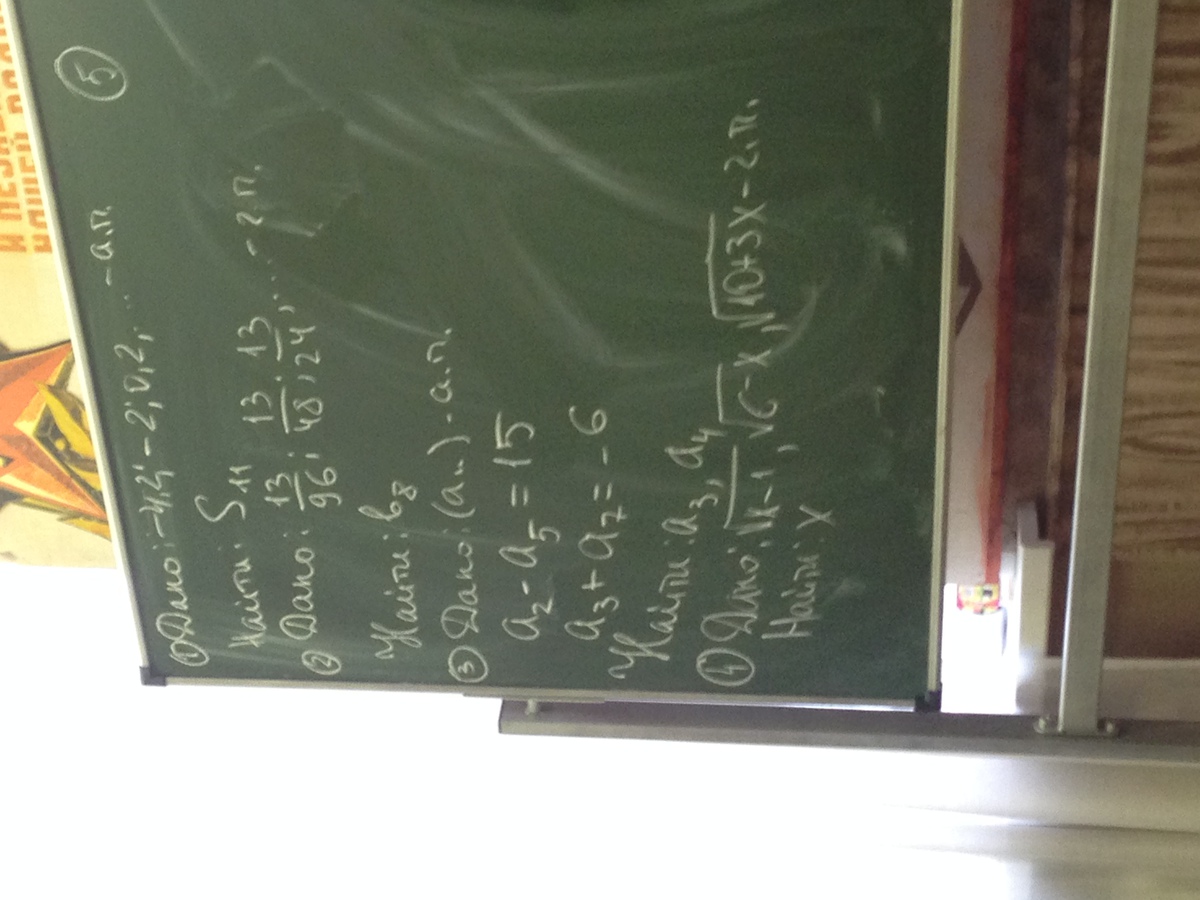 5
① Дано: -4,2; -2; 0,2,... - а.п.
Найти: S₁₁
② Дано: 13/96; 13/48; 13/24;... - г.п.
Найти: b₈
③ Дано: (aₙ) - а.п.
a₂ - a₅ = 15
a₃ + a₇ = -6
Найти: a₃, a₄
④ Дано: √x-1, √6-x, √10+3x - г.п.
Найти: x
НАШЕЙ